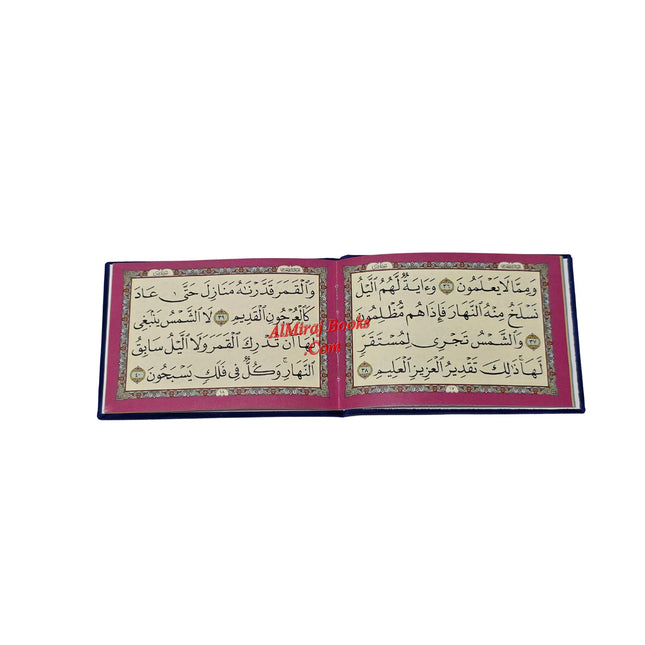 ومِمَّا لَا يَعْلَمُونَ ٣٦ وَءَايَةٌ لَّهُمُ ٱلَّيْلُ
نَسْلَخُ مِنْهُ ٱلنَّهَارَ فَإِذَا هُم مُّظْلِمُونَ
٣٧ وَٱلشَّمْسُ تَجْرِى لِمُسْتَقَرٍّ
لَّهَا ۚ ذَٰلِكَ تَقْدِيرُ ٱلْعَزِيزِ ٱلْعَلِيمِ ٣٨
وَٱلْقَمَرَ قَدَّرْنَٰهُ مَنَازِلَ حَتَّىٰ عَادَ
كَٱلْعُرْجُونِ ٱلْقَدِيمِ ٣٩ لَا ٱلشَّمْسُ يَنۢبَغِى
لَهَآ أَن تُدْرِكَ ٱلْقَمَرَ وَلَا ٱلَّيْلُ سَابِقُ
ٱلنَّهَارِ ۚ وَكُلٌّ فِى فَلَكٍ يَسْبَحُونَ ٤٠
AlMiraj Books
.Com